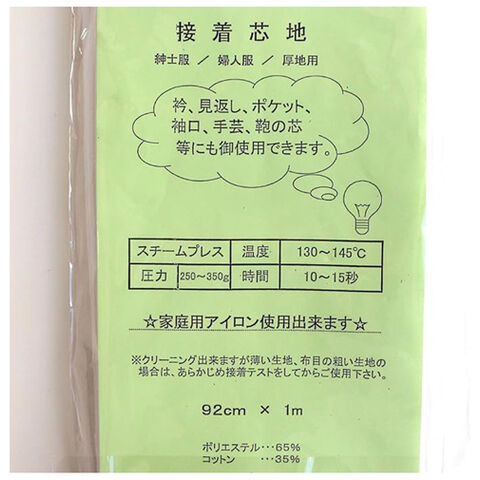 接着芯地
紳士服 / 婦人服 / 厚地用
衿、見返し、ポケット、
袖口、手芸、鞄の芯
等にも御使用できます。
スチームプレス 温度 130～145℃
圧力 250～350g 時間 10～15秒
☆家庭用アイロン使用出来ます☆
※クリーニング出来ますが薄い生地、布目の粗い生地の
場合は、あらかじめ接着テストをしてからご使用下さい。
92cm × 1m
ポリエステル･･･65%
コットン･･･35%